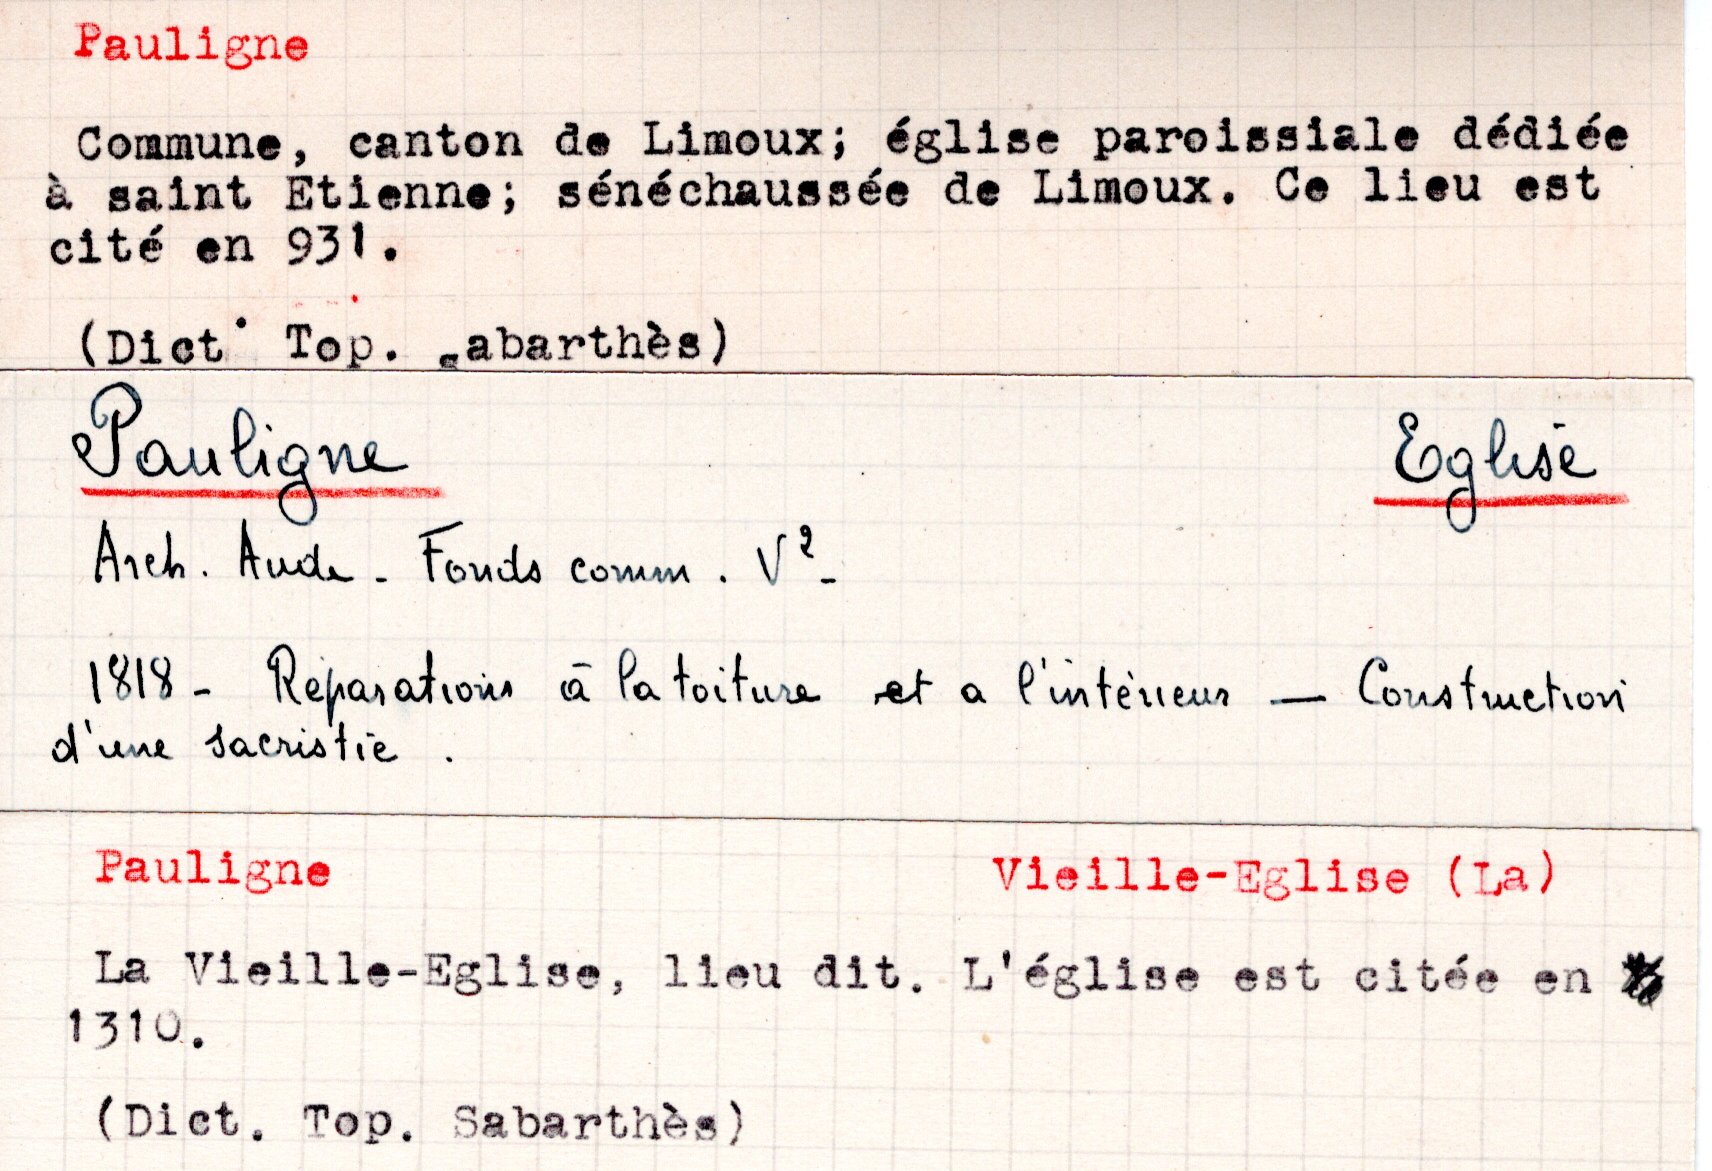 Pauligne
Commune, canton de Limoux; église paroissiale dédiée
à saint Etienne; sénéchaussée de Limoux. Ce lieu est
cité en 931.
(Dict. Top. Sabarthès)
Pauligne Eglise
Arch. Aude - Fonds comm. V²-
1818 - Réparations à la toiture et a l'intérieur — Construction
d'une sacristie.
Pauligne Vieille-Eglise (La)
La Vieille-Eglise, lieu dit. L'église est citée en
1310.
(Dict. Top. Sabarthès)